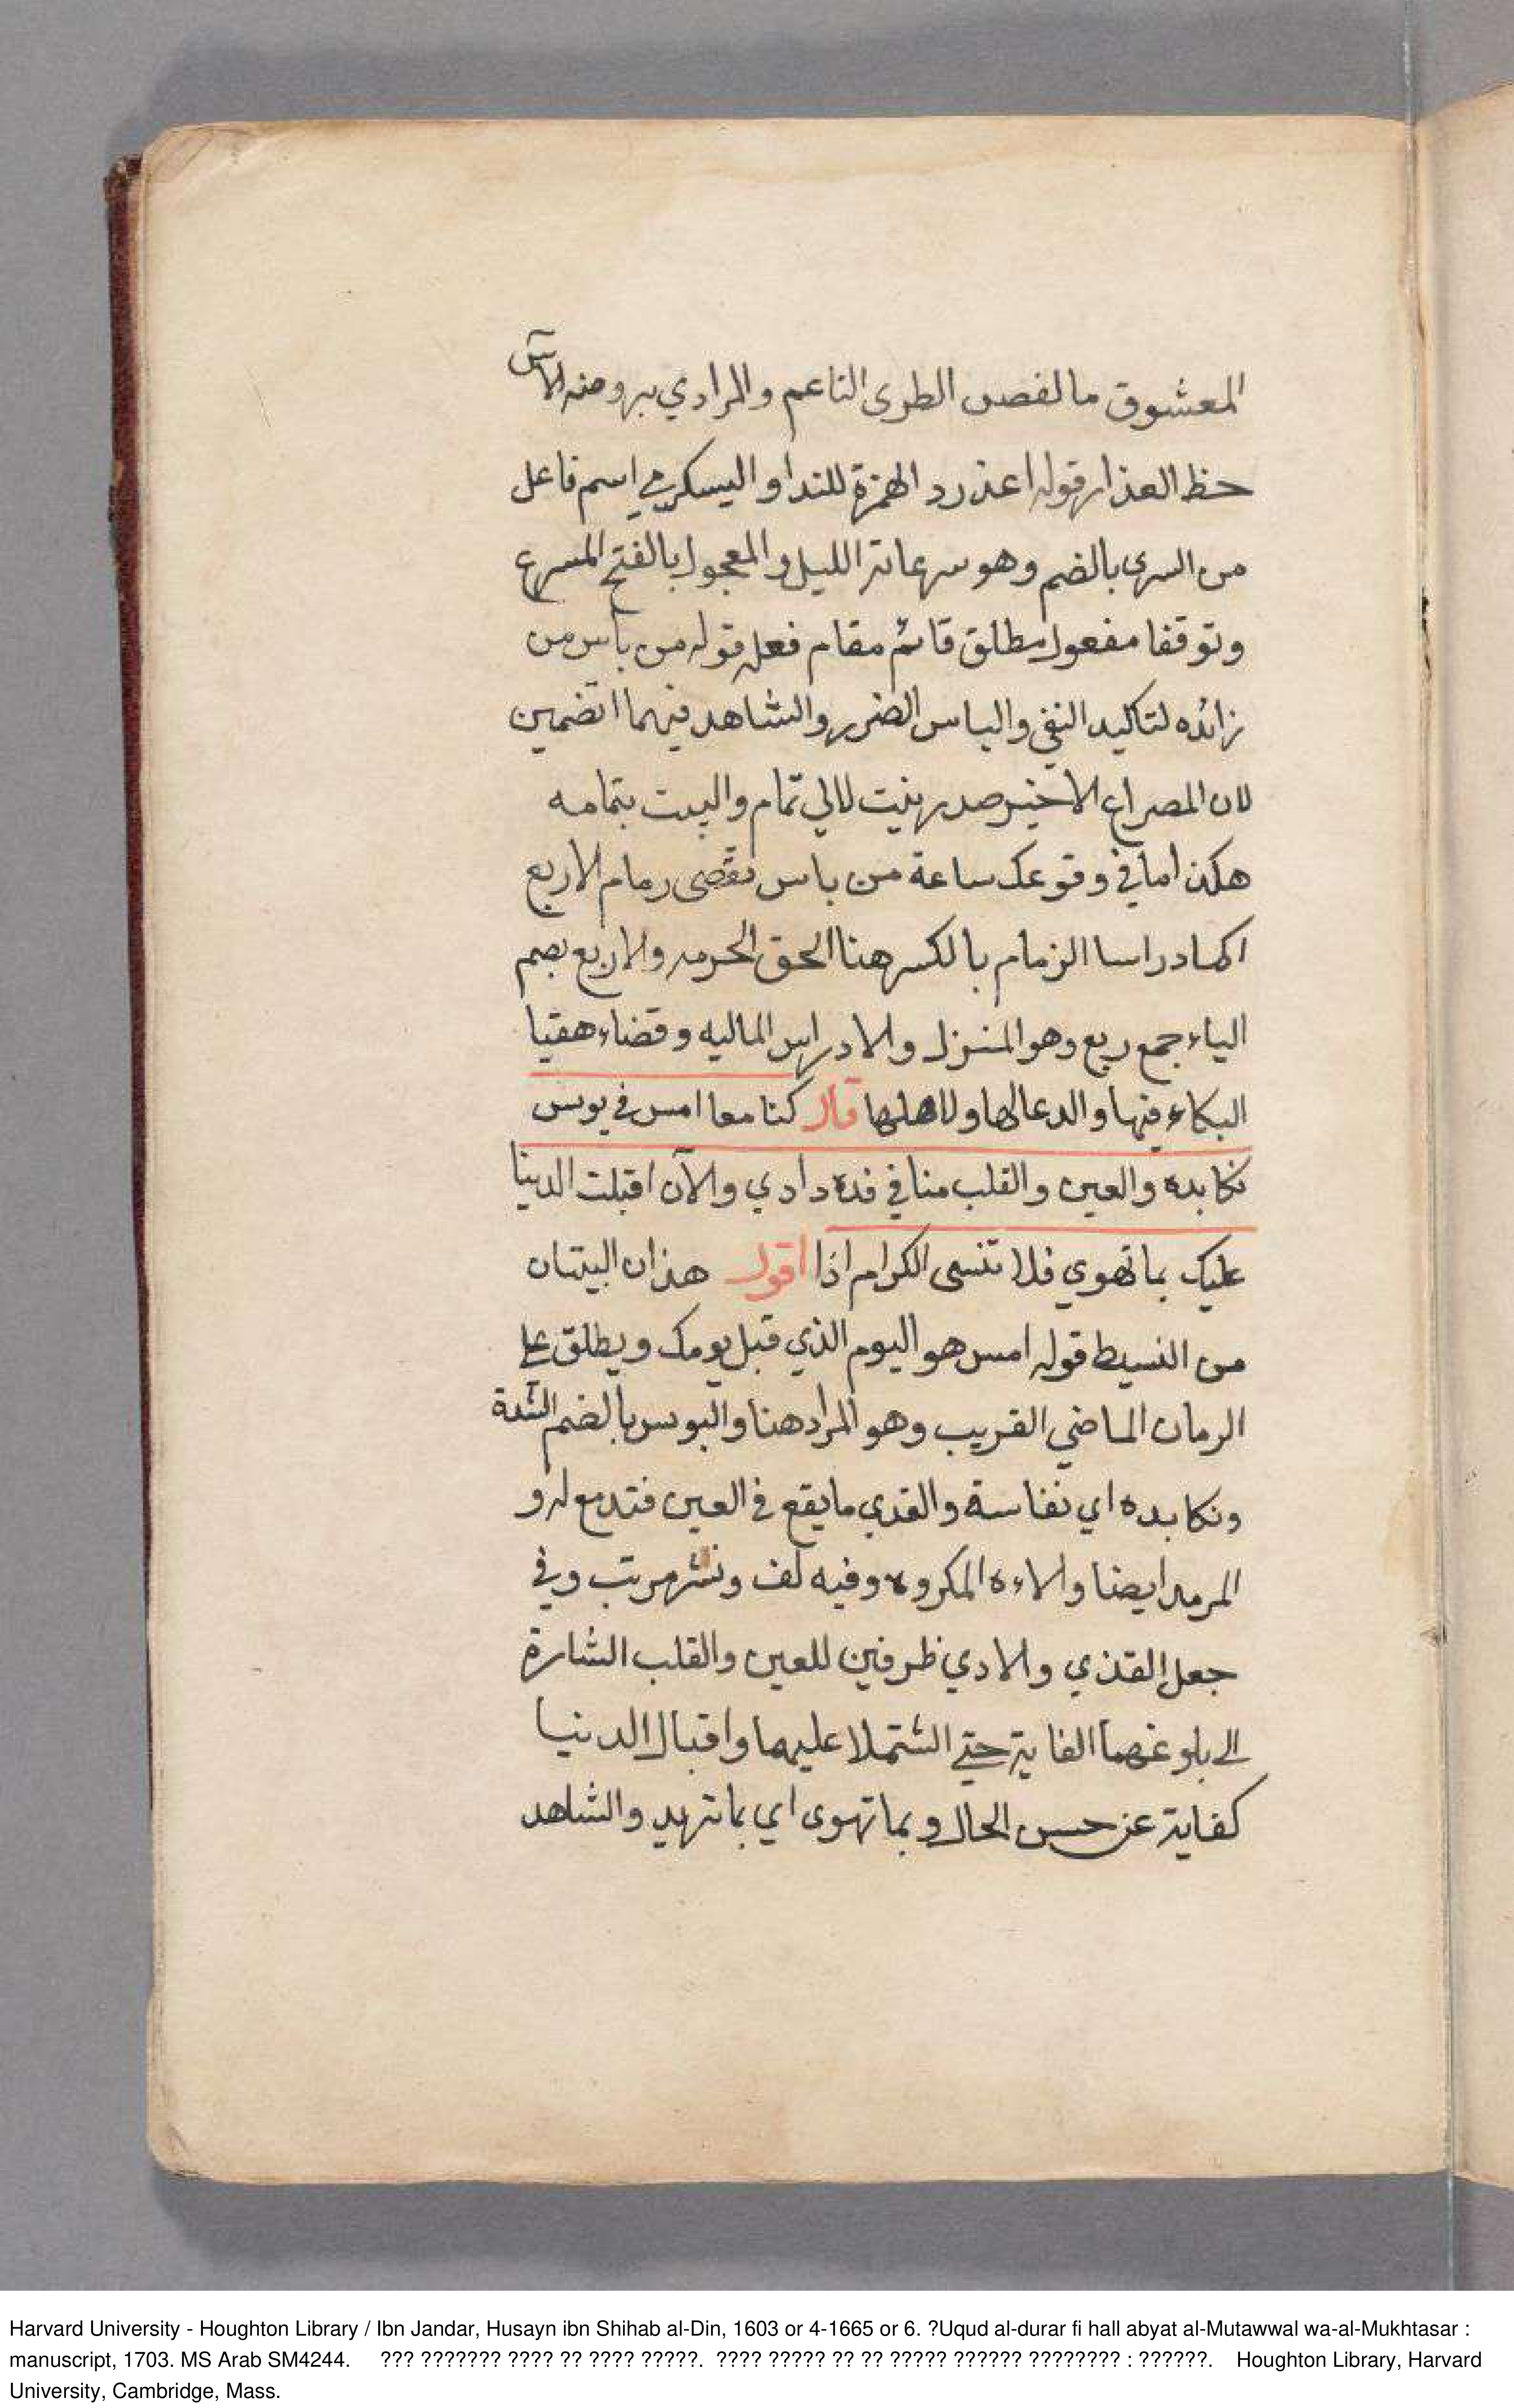 المعشوق مالغصن الطرى الناعم والمرادي بهرومنه الآس
حظ العذار قوله اعذرد الهمزة للندا واليسكري اسم فاعل
من السرى بالضم وهو سرعاتة الليل والمعجول بالفتح المسرع
وتوقفا مفعول مطلق قائم مقام فعله قوله من باس من
زائده لتاكيد النفي والباس الضرر والشاهد فيهما اتضمين
لان المصراع الاخير صدر بيت لالي تمام والبيت بتمامه
هكذا ما في وقوعك ساعة من باس نقضى رمام الاربع
اكمادراسا الزمام بالكسر هنا الحق الحرمه والاربع بضم
الياء جمع ربع وهو المنزل والادراس الماليه وقضاء هقيا
البكاء فيها والدعا لها ولاهلها قال كنا معا امس في بوس
نكابده والعين والقلب منا في قده دادي والآن اقبلت الدينا
عليك بما تهوي فلا تنسى الكرام اذا اقول هذان البيتان
من النسيط قوله امس هو اليوم الذي قبل يومك ويطلق على
الرمان الماضي القريب وهو المراد هنا والبوس بالضم الشدة
ونكابده اي نفاسة والقدي ما يقع في العين فتدمع له و
المرمد ايضا والاءه المكروه وفيه لف ونشر مرتب وفي
جعل القذي والادي ظرفين للعين والقلب الشارة
الى بلوغهما الغاية حتي الشتملا عليهما واقبال الدنيا
كفاية عن حسن الحال و بما تهوى اي بما تريد والشاهد
Harvard University - Houghton Library / Ibn Jandar, Husayn ibn Shihab al-Din, 1603 or 4-1665 or 6. ?Uqud al-durar fi hall abyat al-Mutawwal wa-al-Mukhtasar :
manuscript, 1703. MS Arab SM4244. ??? ??????? ???? ?? ???? ?????. ???? ????? ?? ?? ????? ?????? ???????? : ??????. Houghton Library, Harvard
University, Cambridge, Mass.